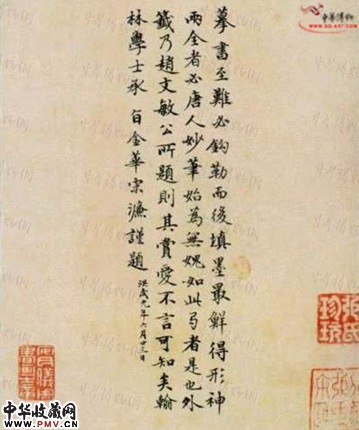 摹書至難必鈎勒而後填墨最鮮得形神
兩全者必唐人妙筆始為無媿如此弓者是也外
籤乃趙文敏公所題則其賞愛不言可知矣翰
林學士承旨金華宋濂謹題
洪武九年六月廿三日
中华收藏网
WWW.PMV.CN